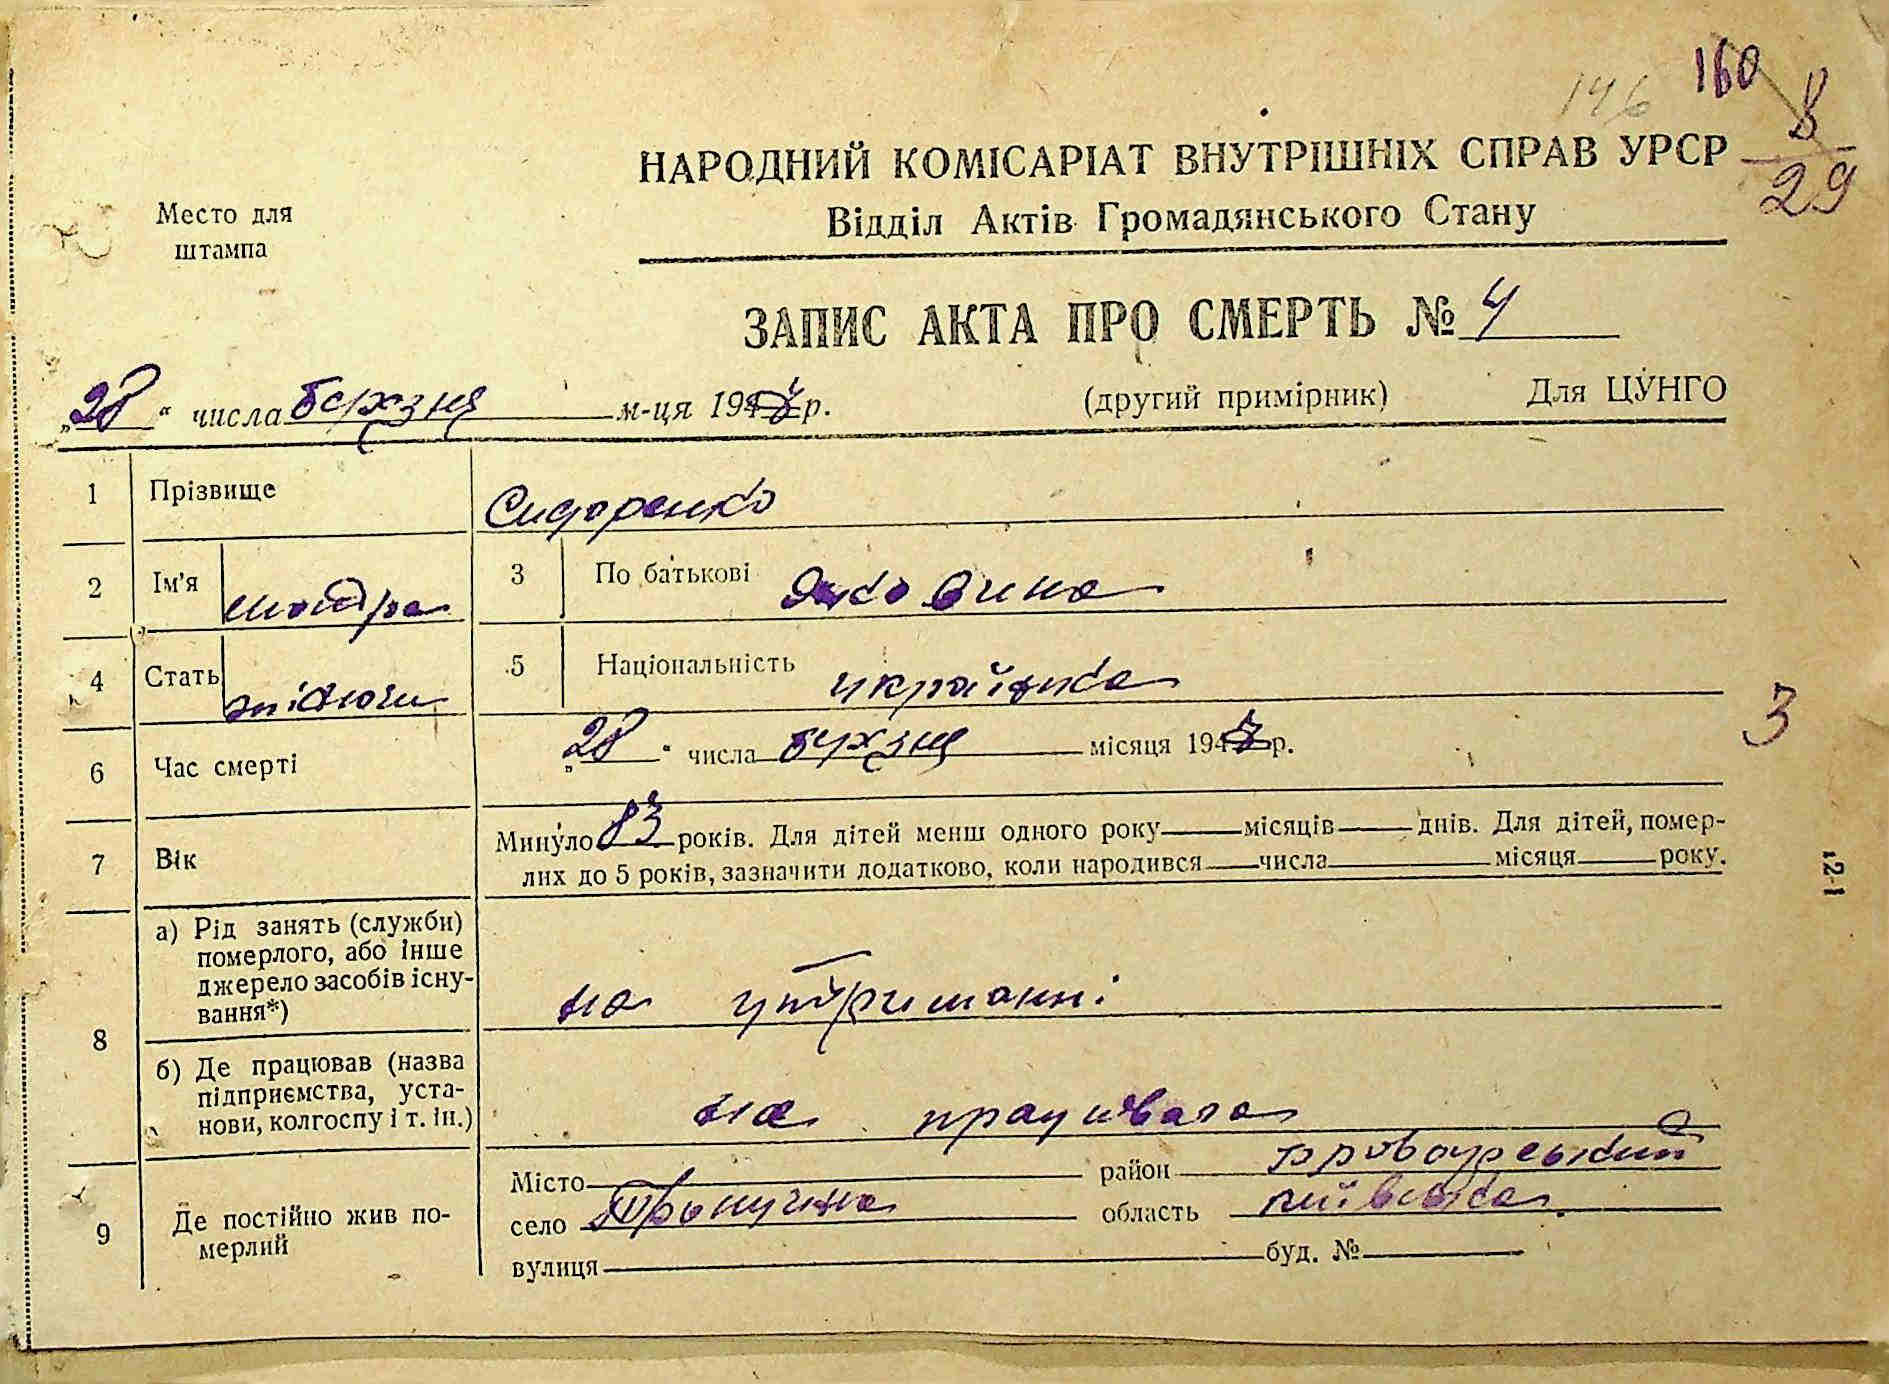 146 160 8
29
НАРОДНИЙ КОМІСАРІАТ ВНУТРІШНІХ СПРАВ УРСР
Відділ Актів Громадянського Стану
Место для
штампа
ЗАПИС АКТА ПРО СМЕРТЬ № 4
„28“ числа березня м-ця 1947 р. (другий примірник) Для ЦУНГО
1 Прізвище Сидоренко
2 Ім'я мотря 3 По батькові Яковина
4 Стать жіноча 5 Національність українка
3
6 Час смерті „28“ числа березня місяця 1947 р.
7 Вік Минуло 83 років. Для дітей менш одного року місяців днів. Для дітей, помер-
лих до 5 років, зазначити додатково, коли народився числа місяця року.
12-1
8 а) Рід занять (служби)
померлого, або інше
джерело засобів існу-
вання*) на утриманні
б) Де працював (назва
підприємства, уста-
нови, колгоспу і т. ін.) не працювала
9 Де постійно жив по-
мерлий
Місто район броварський
село область київська
вулиця буд. №